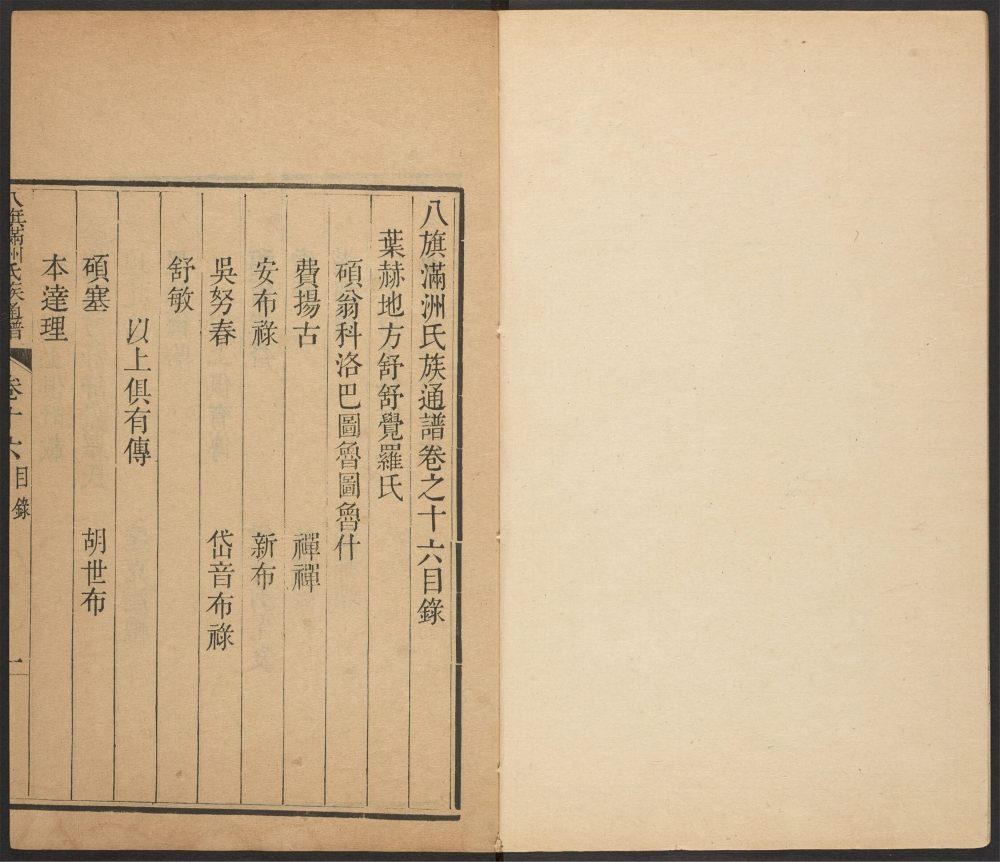 八旗滿洲氏族通譜卷之十六目錄
葉赫地方舒舒覺羅氏
碩翁科洛巴圖魯圖魯什
費揚古　禪禪
安布祿　新布
吳努春　岱音布祿
舒敏
以上俱有傳
碩塞　胡世布
本達理
八旗滿洲氏族通譜　卷十六　目錄　一